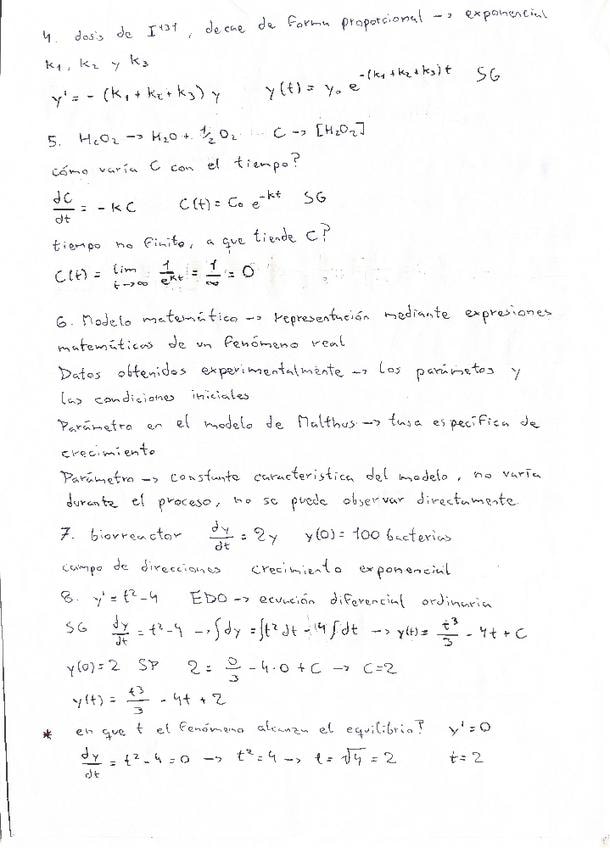 4. dosis de I¹³¹, decae de forma proporcional → exponencial
k₁, k₂ y k₃
y' = -(k₁+k₂+k₃)y y(t) = y₀ e^-(k₁+k₂+k₃)t SG
5. H₂O₂ → H₂O + ½O₂ C → [H₂O₂]
cómo varía C con el tiempo?
dC/dt = -KC C(t) = C₀ e^-kt SG
tiempo no finito, a que tiende C?
C(t) = lim t→∞ 1/e^kt = 1/∞ = 0
6. Modelo matemático → representación mediante expresiones
matemáticas de un fenómeno real
Datos obtenidos experimentalmente → Los parámetos y
las condiciones iniciales
Parámetro en el modelo de Malthus → tasa específica de
crecimiento
Parámetro → constante característica del modelo, no varía
durante el proceso, no se puede observar directamente.
7. biorreactor dy/dt = 2y y(0) = 100 bacterias
campo de direcciones crecimiento exponencial
8. y' = t² - 4 EDO → ecuación diferencial ordinaria
SG dy/dt = t² - 4 → ∫dy = ∫t²dt - 4∫dt → y(t) = t³/3 - 4t + C
y(0) = 2 SP 2 = 0/3 - 4·0 + C → C = 2
y(t) = t³/3 - 4t + 2
* en que t el fenómeno alcanza el equilibrio? y' = 0
dy/dt = t² - 4 = 0 → t² = 4 → t = √4 = 2 t = 2